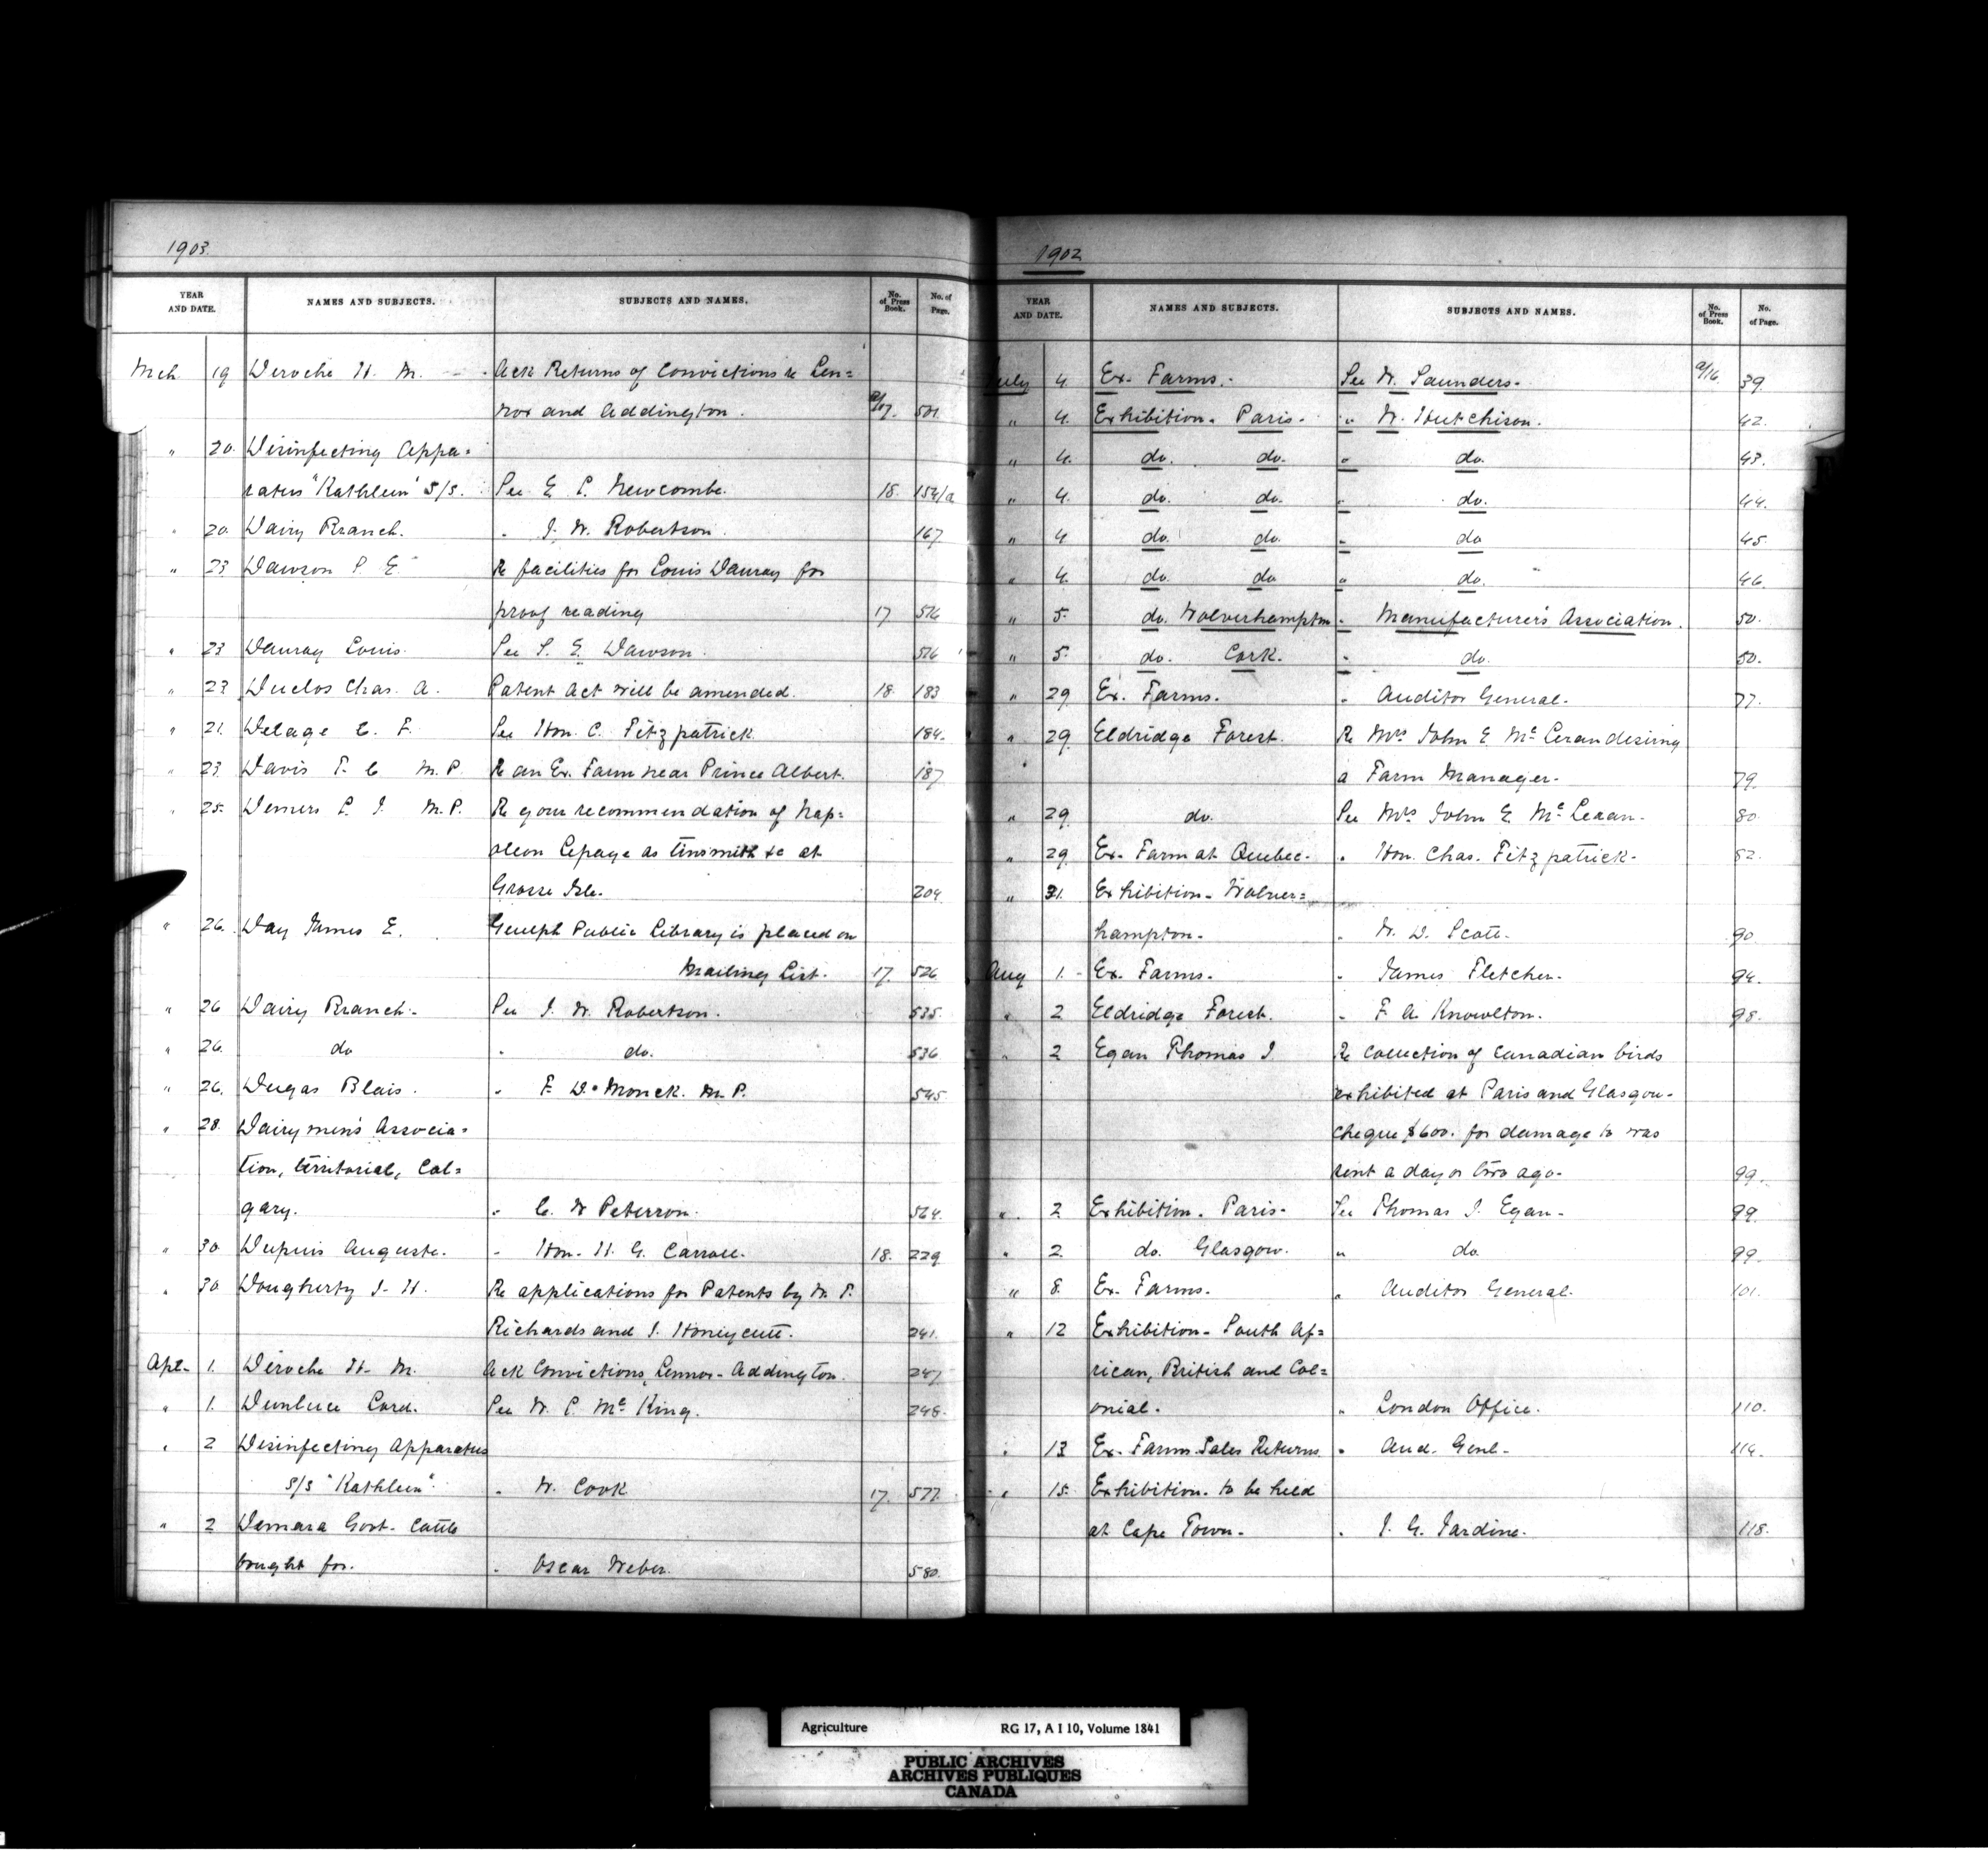 1903.
YEAR AND DATE. NAMES AND SUBJECTS. SUBJECTS AND NAMES. No. of Press Book. No. of Page.
Mch 19 Deroche H. M. - Ack Returns of Convictions re Len=
nox and Addington. a/17. 501
" 20. Disinfecting Appa=
ratus "Kathleen" S/S. See E. L. Newcombe. 18. 154/a
" 20. Dairy Branch. " J. W. Robertson. 167
" 23 Dawson S. E. Re facilities for Louis Dauray for
proof reading 17 516
" 23 Dauray Louis. See S. E. Dawson. 516
" 23 Duclos Chas. A. Patent Act will be amended. 18. 183
" 21. Delage C. F. See Hon. C. Fitzpatrick 184.
" 23. Davis T. C. M.P. Re an Ex. Farm near Prince Albert. 187
" 25. Demers L. J. M.P. Re your recommendation of Nap=
oleon Lepage as tinsmith &c at
Grosse Isle. 204
" 26. Day James E. Guelph Public Library is placed on
Mailing List. 17. 526
" 26 Dairy Branch. See J. W. Robertson. 535.
" 26. do " do. 536
" 26. Dugas Blais. " F. D. Monck. M.P. 545
" 28. Dairymen's Associa=
tion, territorial, Cal=
gary. " C. W Peterson. 564.
" 30. Dupuis Auguste. " Hon. H. G. Carroll. 18. 229
" 30 Dougherty J. H. Re applications for Patents by M. P.
Richards and J. Honiycutt. 241.
Apl- 1. Deroche H. M. Ack Convictions, Lennox-Addington. 247
" 1. Dunluce Lord. See W. P. Mc King. 248.
" 2 Disinfecting Apparatus
S/S "Kathleen". " W. Cook 17. 577.
" 2 Demara Govt. Cattle
bought for. " Oscar Weber. 580.
1902
YEAR AND DATE. NAMES AND SUBJECTS. SUBJECTS AND NAMES. No. of Press Book. No. of Page.
July 4. Ex. Farms. See W. Saunders. a/16. 39.
" 4. Exhibition. Paris. " W. Hutchison. 42.
" 4. do. do. " do. 43.
" 4. do. do. " do. 44.
" 4 do. do. " do 45.
" 4. do. do " do. 46.
" 5. do. Wolverhampton " Manufacturer's Association. 50.
" 5. do. Cork. " do. 50.
" 29 Ex. Farms. " Auditor General. 77.
" 29 Eldridge Forest. Re Mrs John E Mc Leran desiring
a Farm Manager. 79.
" 29 do. See Mrs John E. Mc Leran. 80
" 29 Ex. Farm at Quebec. " Hon. Chas. Fitzpatrick. 82.
" 31. Exhibition - Wolver=
hampton. " W. D. Scott. 90
Aug 1. Ex. Farms. " James Fletcher. 94.
" 2 Eldridge Forest. " F. A. Knowlton. 98.
" 2 Egan Thomas J. Re Collection of Canadian birds
exhibited at Paris and Glasgow.
Cheque $600. for damage to was
sent a day or two ago. 99.
" 2 Exhibition. Paris. See Thomas J. Egan. 99.
" 2. do. Glasgow. " do. 99.
" 8. Ex. Farms. " Auditor General. 101.
" 12 Exhibition - South Af=
rican, British and Col=
onial. " London Office. 110.
" 13 Ex. Farms Sales Returns " Aud. Genl. 114.
" 15. Exhibition. to be held
at Cape Town. " J. G. Jardine. 118.
Agriculture RG 17, A I 10, Volume 1841
PUBLIC ARCHIVES
ARCHIVES PUBLIQUES
CANADA